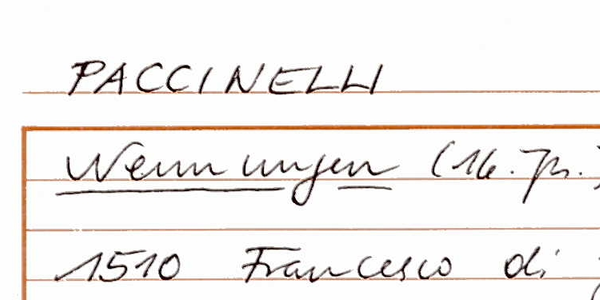 PACCINELLI
Nennungen (16. Jh.)
1510 Francesco di